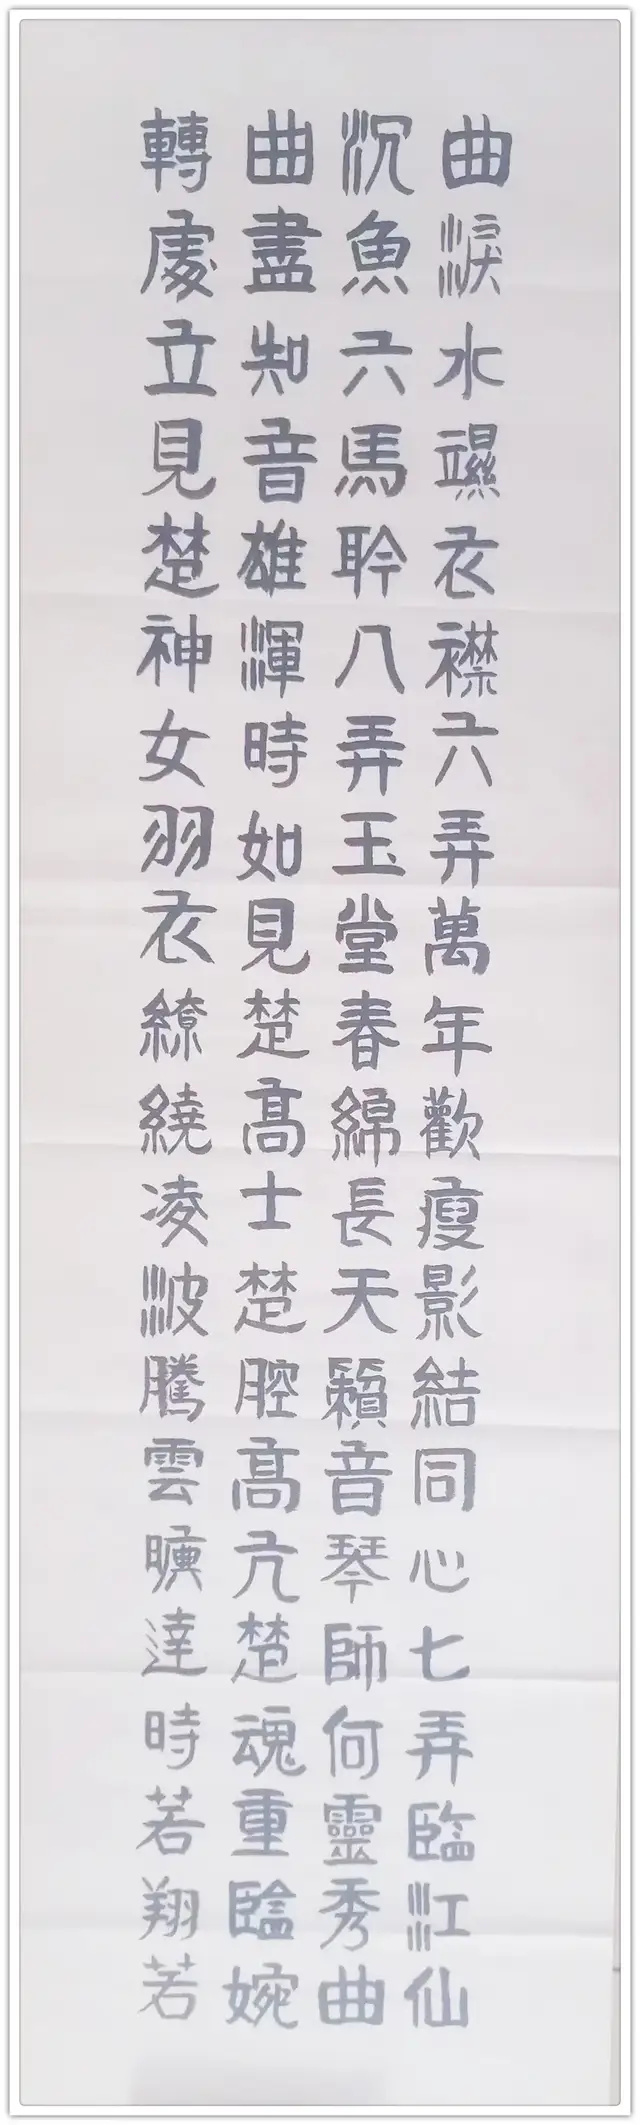 曲淚水濕衣襟六弄萬年歡瘦影結同心七弄臨江仙
沉魚六馬聆八弄玉堂春綿長天籟音琴師何靈秀曲
曲盡知音雄渾時如見楚高士楚腔高亢楚魂重臨婉
轉處立見楚神女羽衣繚繞凌波騰雲曠達時若翔若